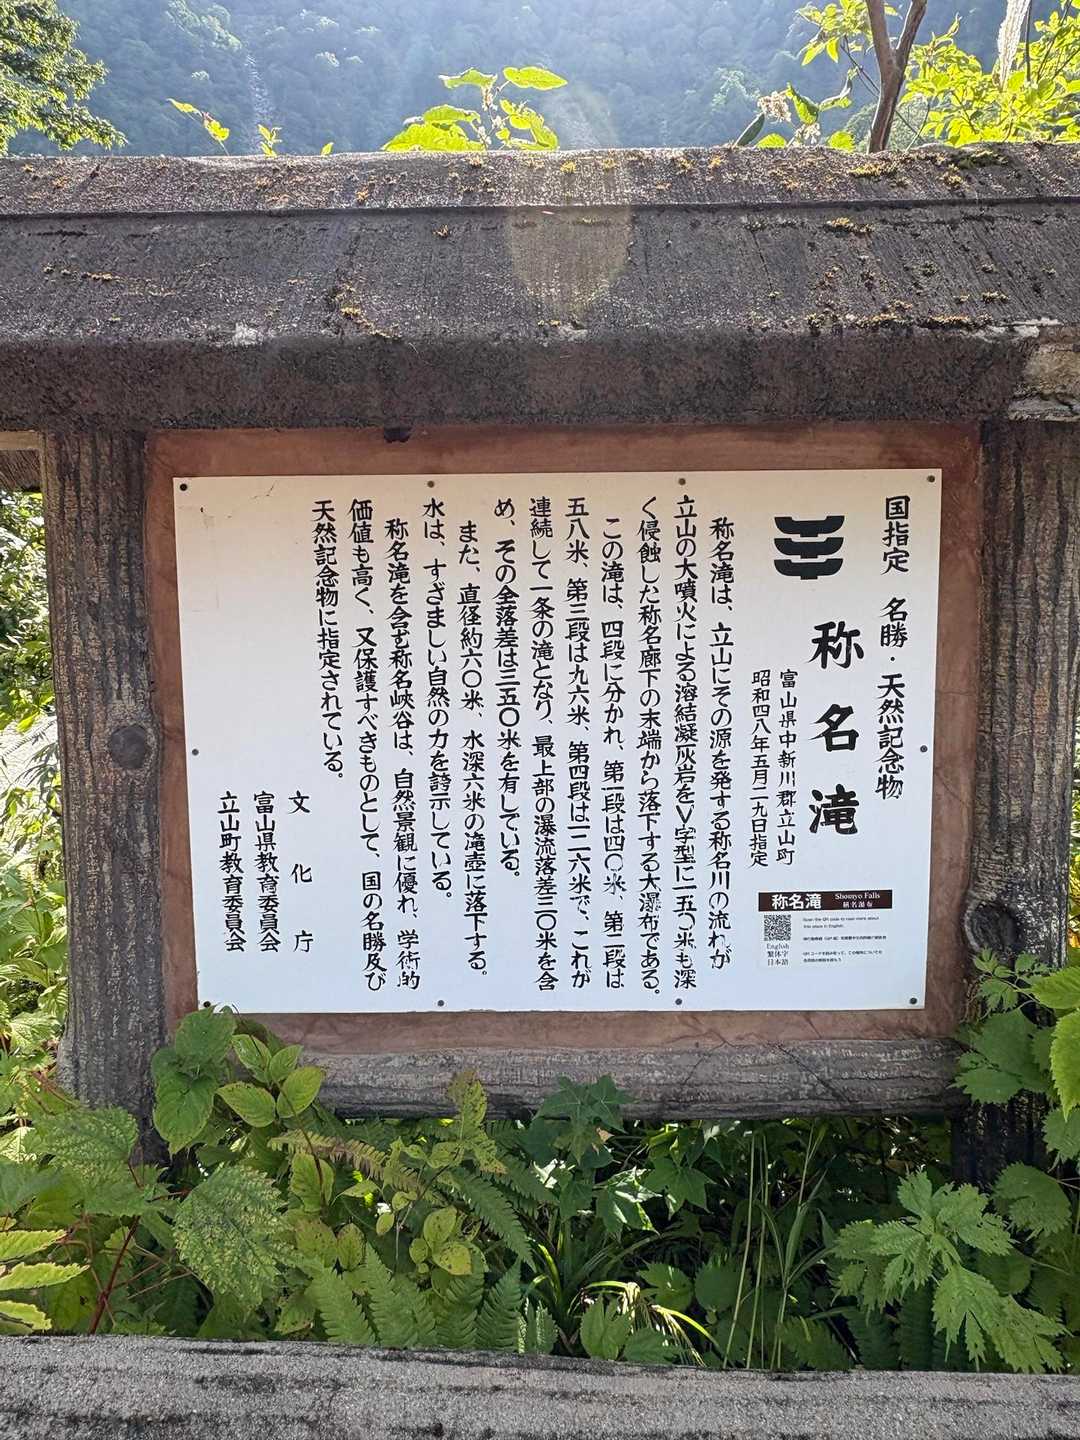 国指定 名勝・天然記念物
称名滝
富山県中新川郡立山町
昭和四八年五月二九日指定
称名滝は、立山にその源を発する称名川の流れが
立山の大噴火による溶結凝灰岩をV字型に一五〇米も深
く侵蝕した称名廊下の末端から落下する大瀑布である。
この滝は、四段に分かれ、第一段は四〇米、第二段は
五八米、第三段は九六米、第四段は一二六米で、これが
連続して一条の滝となり、最上部の瀑流落差三〇米を含
め、その全落差は三五〇米を有している。
また、直径約六〇米、水深六米の滝壺に落下する。
水は、すざましい自然の力を誇示している。
称名滝を含む称名峡谷は、自然景観に優れ、学術的
価値も高く、又保護すべきものとして、国の名勝及び
天然記念物に指定されている。
文化庁
富山県教育委員会
立山町教育委員会
称名滝
Shomyo Falls
稱名瀑布
English
繁体字
日本語
Scan the QR code to read more about
this place in English.